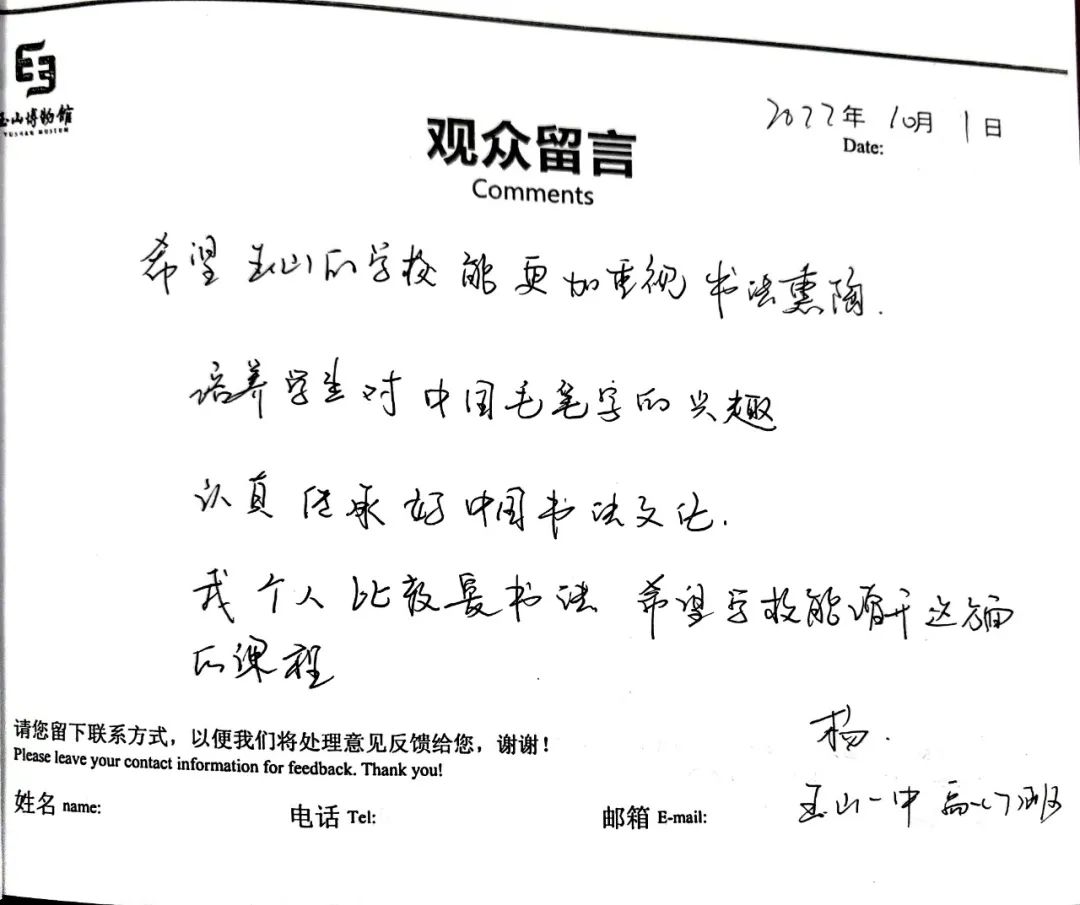 玉山博物馆
YUSHAN MUSEUM
2022年 10月 1日
Date:
观众留言
Comments
希望玉山的学校能更加重视书法熏陶.
培养学生对中国毛笔字的兴趣
认真传承好中国书法文化.
我个人比较爱书法 希望学校能增开这方面
的课程
杨.
玉山一中 高一(7)班
请您留下联系方式，以便我们将处理意见反馈给您，谢谢！
Please leave your contact information for feedback. Thank you!
姓名 name:
电话 Tel:
邮箱 E-mail: